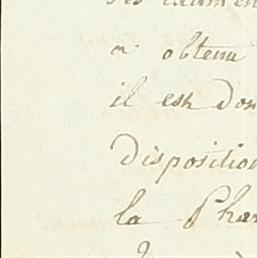 a obtenu
il est don
disposition
la Phar